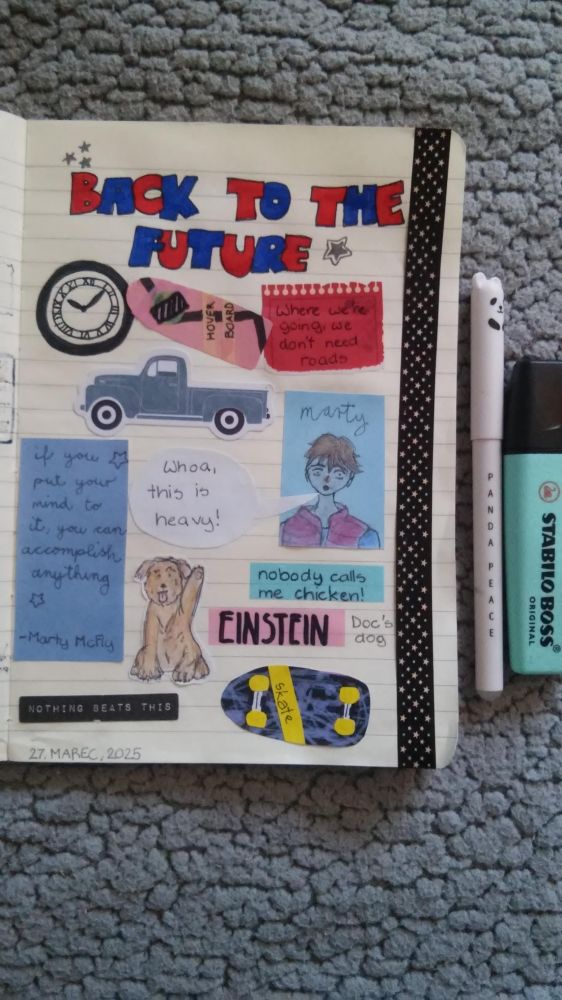 BACK TO THE
FUTURE
HOVER
BOARD
Where we're
going, we
don't need
roads
marty
if you
put your
mind to
it, you can
accomplish
anything
-Marty McFly
Whoa,
this is
heavy!
nobody calls
me chicken!
EINSTEIN
Doc's
dog
skate
NOTHING BEATS THIS
27. MAREC, 2025
PANDA PEACE
STABILO BOSS
ORIGINAL